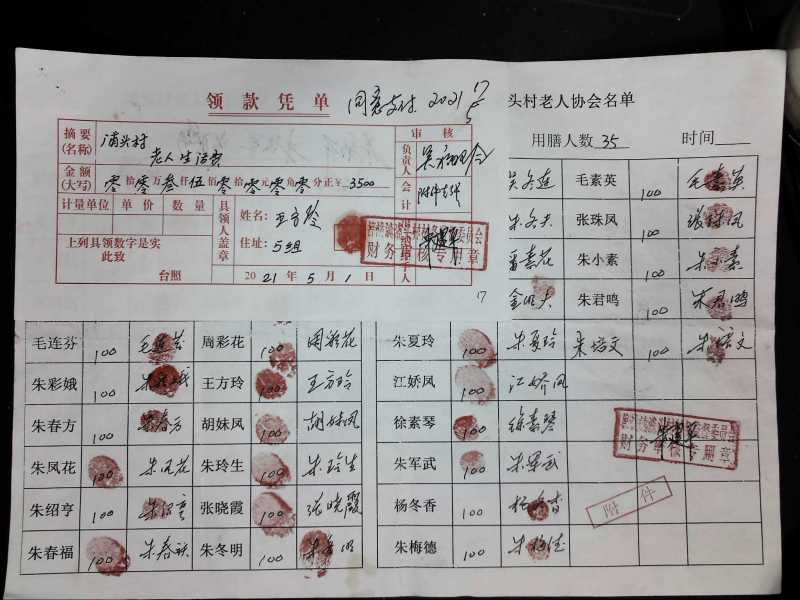 领款凭单 同意支付 2021
头村老人协会名单
用膳人数 35 时间
摘要(名称) 浦头村
老人生活费
审核
负责人
金额(大写) 零拾零万叁仟伍佰零拾零元零角零分正¥3500
会计
计量单位 单价 数量
上列具领数字是实
此致
台照
具领人盖章
姓名: 王方玲
住址: 5组
2021年5月1日
财务审核专用章
17
吴冬莲 毛素英 100 毛素英
朱冬夫 张珠凤 100 张珠凤
番素花 朱小素 100 朱小素
金明夫 朱君鸣 100 朱君鸣
毛连芬 100 毛连芬 周彩花 100 周彩花 朱夏玲 100 朱夏玲 朱培文 100 朱培文
朱彩娥 100 朱彩娥 王方玲 100 王方玲 江娇凤 100 江娇凤
朱春方 100 朱春方 胡妹凤 100 胡妹凤 徐素琴 100 徐素琴
朱凤花 100 朱凤花 朱玲生 100 朱玲生 朱军武 100 朱军武
朱绍亨 100 朱绍亨 张晓霞 100 张晓霞 杨冬香 100 杨冬香
朱春福 100 朱春福 朱冬明 100 朱冬明 朱梅德 100 朱梅德
财务审核专用章
附件